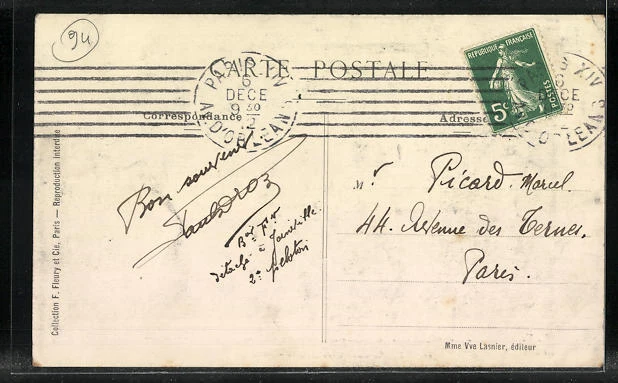 94
CARTE POSTALE
REPUBLIQUE FRANÇAISE
5c
POSTES
PARIS XIV
6
DECE
9 30
AV. D'ORLEANS
Correspondance
Adresse
Bon souvenir
Paul Droz
détaché à Joinville
2e peloton
Mr Picard Marcel.
44. Avenue des Ternes.
Paris.
Collection F. Fleury et Cie, Paris — Reproduction interdite
Mme Vve Lasnier, éditeur